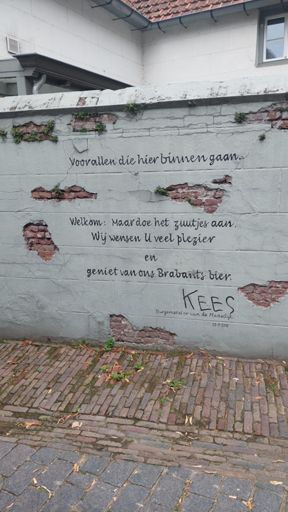 Voor allen die hier binnen gaan..
Welkom: Maar doe het zuutjes aan.
Wij wensen U veel plezier
en
geniet van ons Brabants bier.
KEES
Burgemeister van de